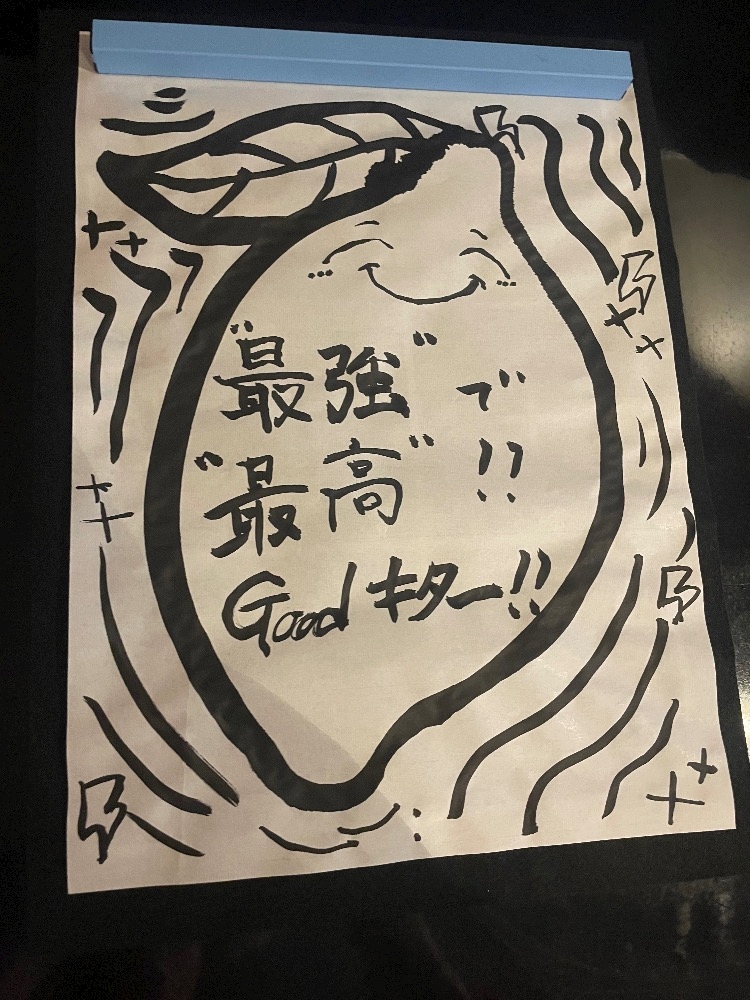 "最強"で
"最高"!!
Good キター!!